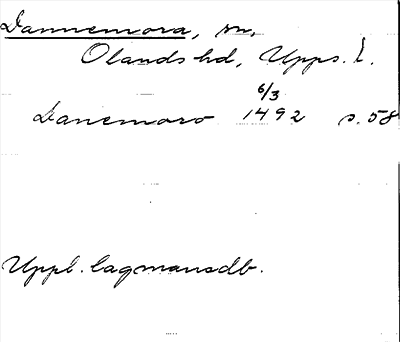 Dannemora, sn,
Olands hd, Upps. l.
6/3
Danemoro 1492 s. 58
Uppl. lagmansdb.